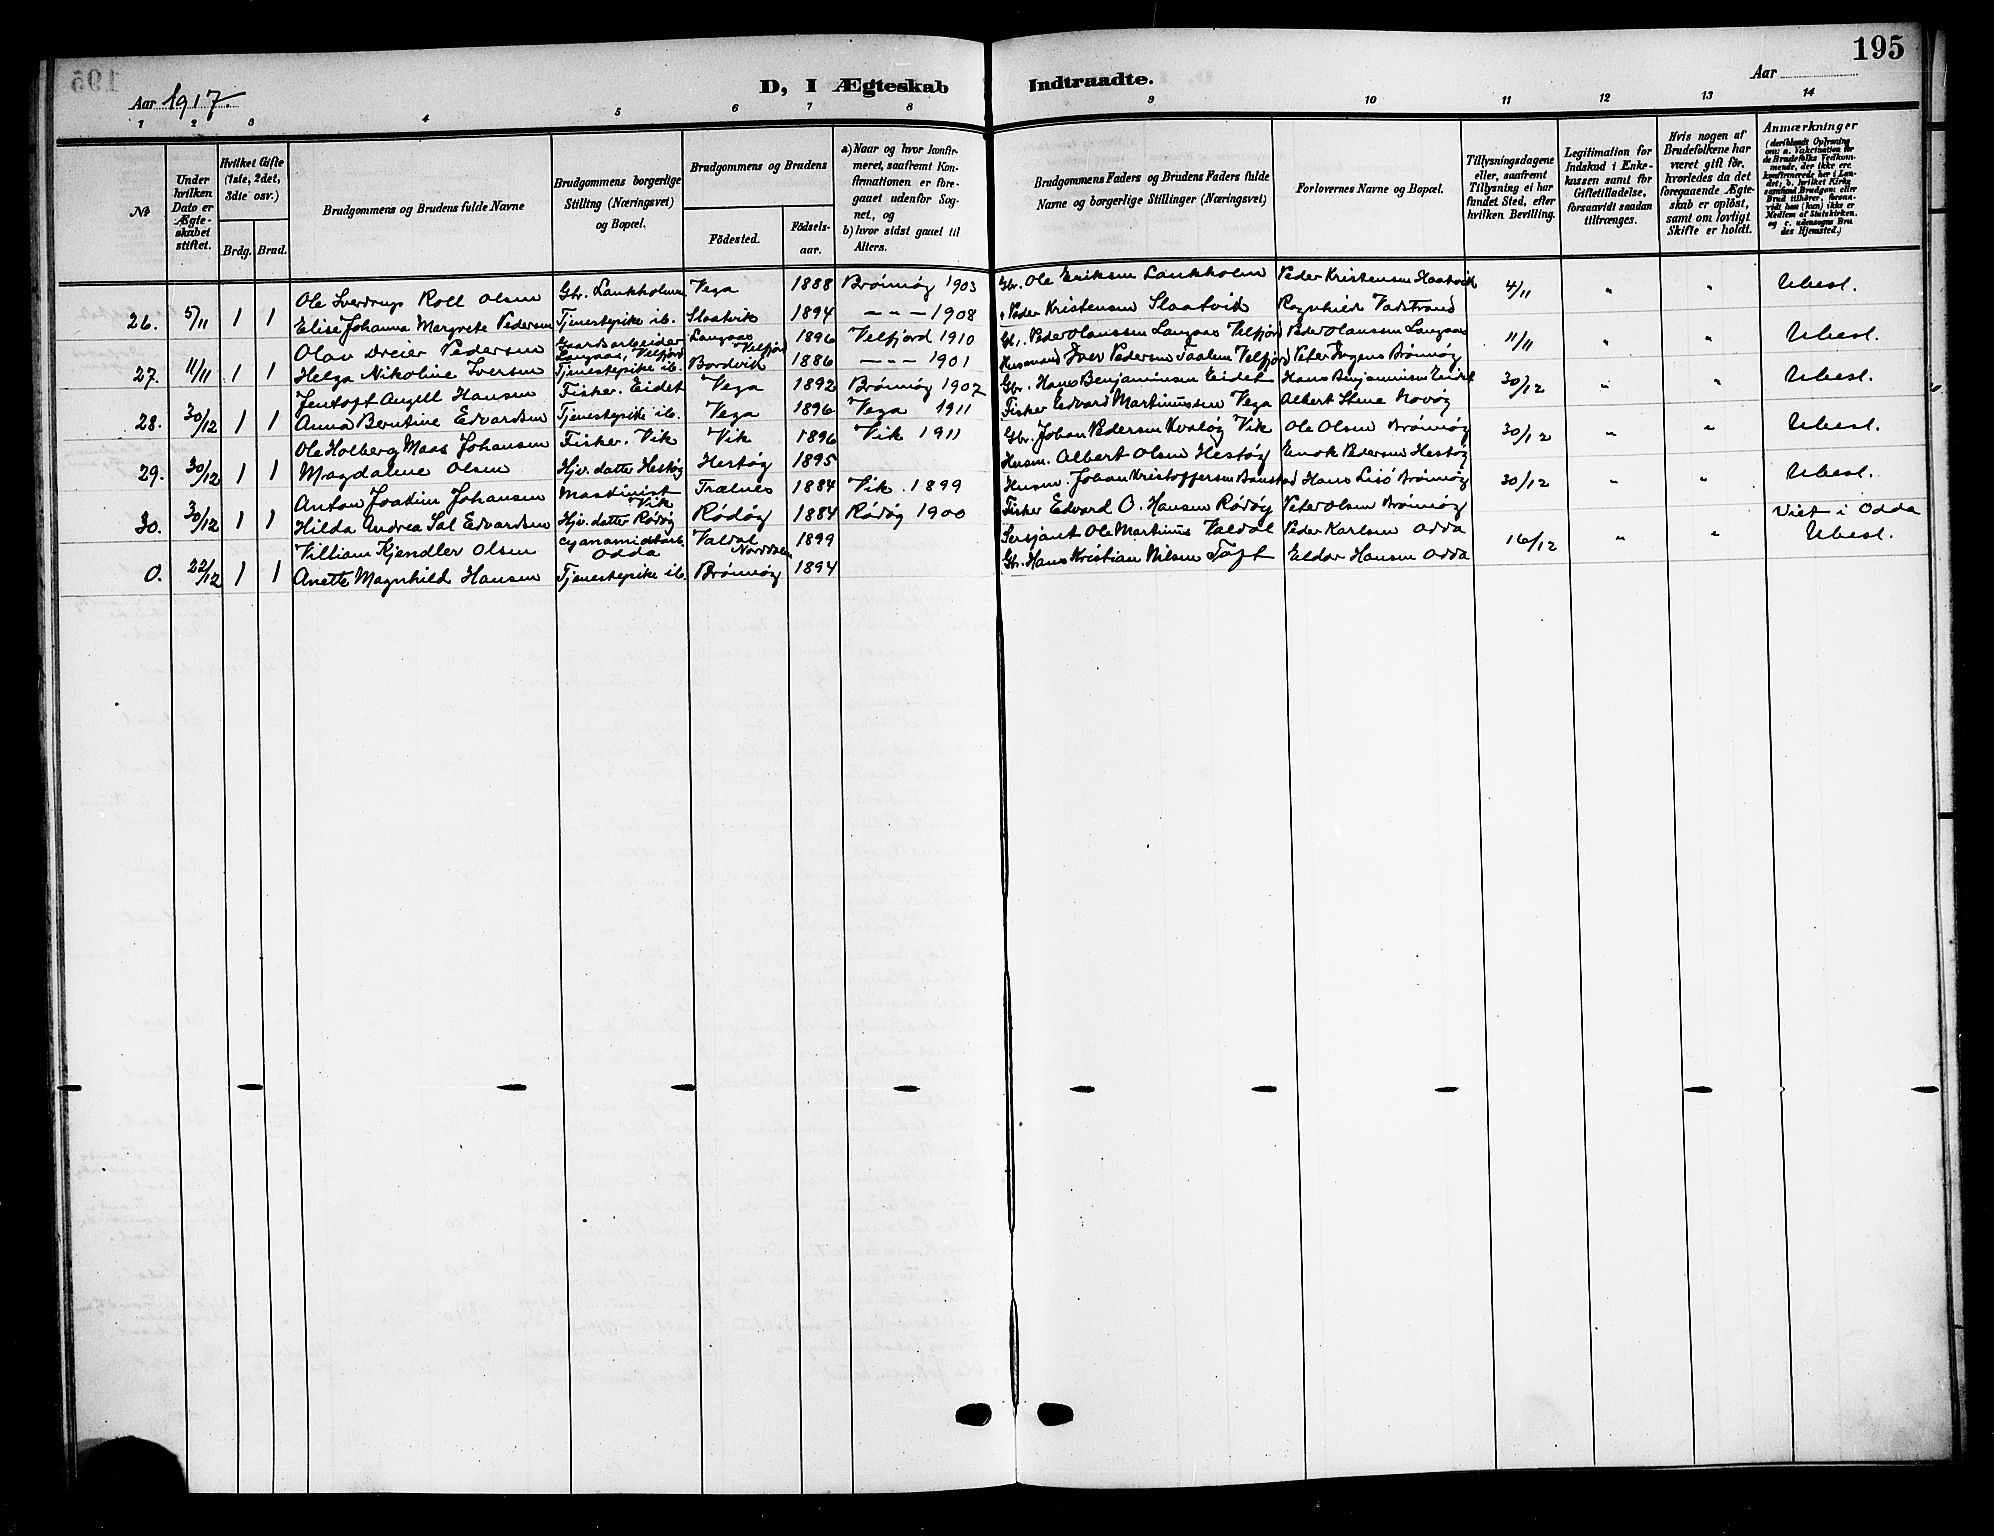 195
Aar 1917.
D, I Ægteskab
Indtraadte.
Aar
1 2 3 4 5 6 7 8 9 10 11 12 13 14
№
Under hvilken Dato er Ægteskabet stiftet.
Hvilket Gifte (1ste, 2det, 3die osv.)
Brdg. Brud.
Brudgommens og Brudens fulde Navne
Brudgommens borgerlige Stilling (Næringsvei) og Bopæl.
Brudgommens og Brudens
Födested.
Födselsaar.
a) Naar og hvor konfirmeret, saafremt Konfirmationen er foregaaet udenfor Sognet, og
b) hvor sidst gaaet til Alters.
Brudgommens Faders og Brudens Faders fulde Navne og borgerlige Stillinger (Næringsvei)
Forlovernes Navne og Bopæl.
Tillysningsdagene eller, saafremt Tillysning ei har fundet Sted, efter hvilken Bevilling.
Legitimation for Indskud i Enkekassen samt for Giftetilladelse, forsaavidt saadan tiltrænges.
Hvis nogen af Brudefolkene har været gift för, hvorledes da det foregaaende Ægteskab er oplöst, samt om lovligt Skifte er holdt.
Anmærkninger
(deriblandt Oplysning om: a. Vakcination for de Brudefolks Vedkommende, der ikke ere konfirmerede her i Landet; b. hvilket Kirkesamfund Brudgom eller Brud tilhörer, forsaavidt han (hun) ikke er Medlem af Statskirken, og c. udensogns Brudes Hjemsted.)
Ole Sverdrup Roll Olsen Gbr. Lankholmen Vega 1888 Brönnöy 1903 Gbr. Ole Eriksen Lankholm Peder Kristensen 4/11 " " Ubesl.
26. 5/11 1 1 Elise Johanna Margrete Pedersen Tjenestepike ib. Slaatvik 1894 — " — 1908 Peder Kristensen Slaatvik Ragnhild Vadstrand
Olav Dreier Pedersen Gaardsarbeider Langaas, Velfjord Langaas Velfjord 1896 Velfjord 1910 Gbr. Peder Olanssen Langaas Velfjord Peder Olanssen Langaas 11/11 " " Ubesl.
27. 11/11 1 1 Helga Nikoline Iversen Tjenestepike ib. Bordvik 1886 — " — 1901 Husmand Iver Pedersen Taalem Velfjord Peter Brönnöy
Jentoft Angell Hansen Fisker. Eidet Vega 1892 Brönnöy 1907 Gbr. Hans Benjaminsen Eidet Hans Benjaminsen Eidet 30/12 " " Ubesl.
28. 30/12 1 1 Anna Berntine Edvardsen Tjenestepike ib. Vega 1896 Vega 1911 Fisker Edvard Martinussen Vega Albert Stene Novöy
Ole Holberg Maas Johansen Fisker. Vik Vik 1896 Vik 1911 Gbr. Johan Pedersen Kvalöy Vik Ole Olsen Brönnöy 30/12 " " Ubesl.
29. 30/12 1 1 Magdalene Olsen Hjv. datter Hestöy Hestöy 1895 Husm. Albert Olsen Hestöy Enok Pedersen Hestöy
Anton Joakim Johansen Maskinist Vik Trælnes 1884 Vik. 1899 Husm. Johan Kristoffersen Hans Lisö Brönnöy 30/12 " " Ubesl.
30. 30/12 1 1 Hilda Andrea Sal Edvardsen Hjv. datter Rödöy Rödöy 1884 Rödöy 1900 Fisker Edvard O. Hansen Rödöy Peter Olsen Brönnöy
Villiam Kjendler Olsen Cyanamidarb. Odda Valdal Norddalen 1899 Sersjant Ole Martinus Valdal Peder Karlsen Odda 16/12 " " Viet i Odda Ubesl.
0. 22/12 1 1 Anette Magnhild Hansen Tjenestepike ib. Brönnöy 1894 Gb. Hans Kristian Nilsen Toft Eldor Hansen Odda